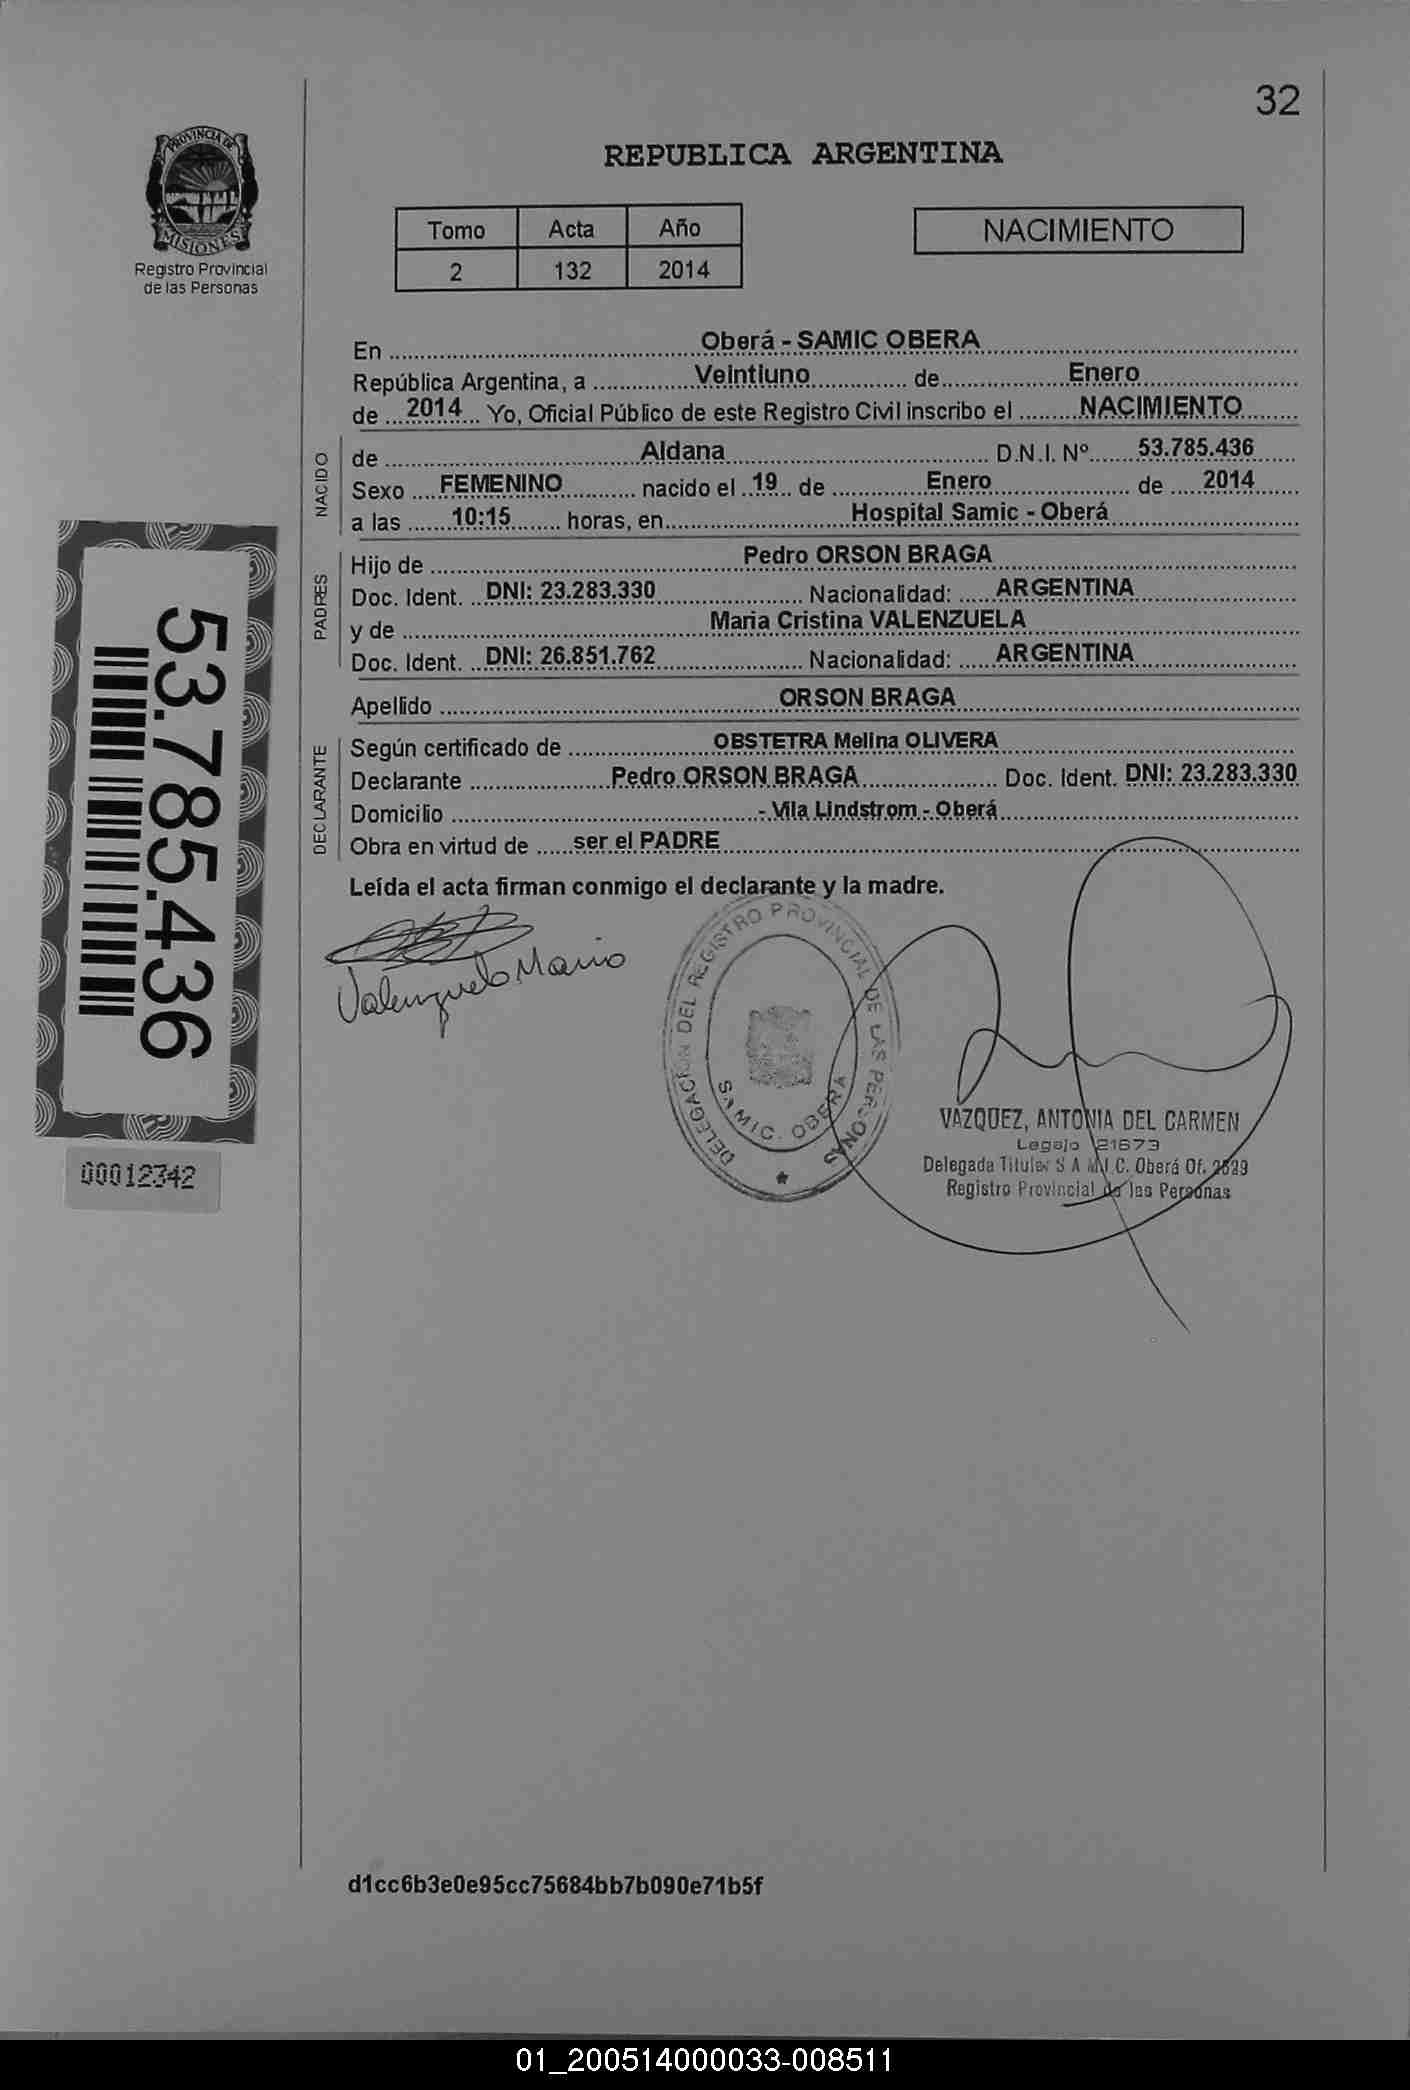 32
PROVINCIA DE
MISIONES
Registro Provincial
de las Personas
REPUBLICA ARGENTINA
Tomo Acta Año
2 132 2014
NACIMIENTO
En Oberá - SAMIC OBERA
República Argentina, a Veintiuno de Enero
de 2014 Yo, Oficial Público de este Registro Civil inscribo el NACIMIENTO
NACIDO
de Aldana D.N.I. Nº 53.785.436
Sexo FEMENINO nacido el 19 de Enero de 2014
a las 10:15 horas, en Hospital Samic - Oberá
PADRES
Hijo de Pedro ORSON BRAGA
Doc. Ident. DNI: 23.283.330 Nacionalidad: ARGENTINA
y de Maria Cristina VALENZUELA
Doc. Ident. DNI: 26.851.762 Nacionalidad: ARGENTINA
Apellido ORSON BRAGA
DECLARANTE
Según certificado de OBSTETRA Melina OLIVERA
Declarante Pedro ORSON BRAGA Doc. Ident. DNI: 23.283.330
Domicilio - Vila Lindstrom - Oberá
Obra en virtud de ser el PADRE
Leída el acta firman conmigo el declarante y la madre.
Valenzuela Maria
DELEGACION DEL REGISTRO PROVINCIAL DE LAS PERSONAS
SAMIC. OBERA
VAZQUEZ, ANTONIA DEL CARMEN
Legajo 21673
Delegada Titular S.A.M.I.C. Oberá Of.
Registro Provincial de las Personas
53.785.436
00012342
d1cc6b3e0e95cc75684bb7b090e71b5f
01_200514000033-008511